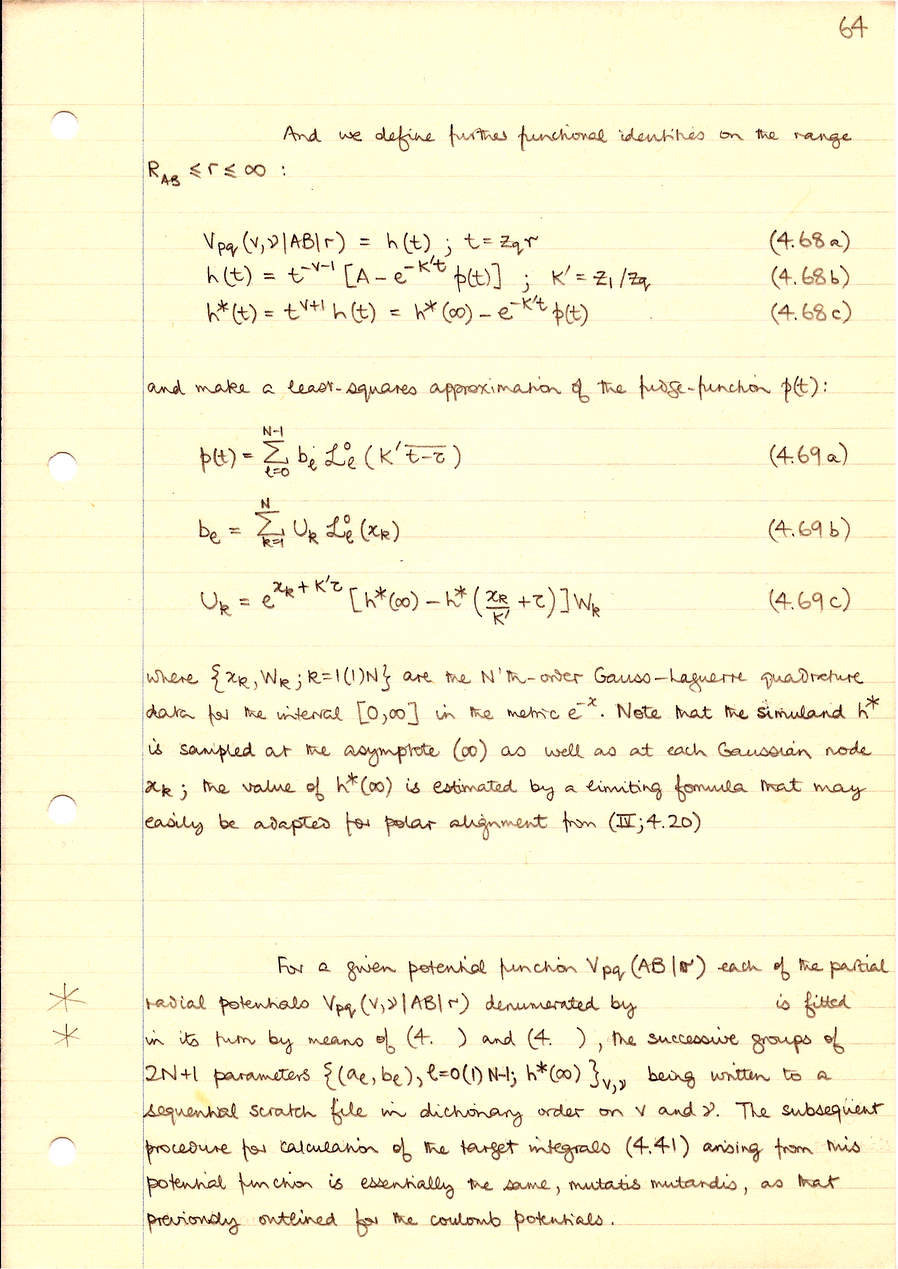 64
And we define further functional identities on the range
R_AB ⩽ r ⩽ ∞ :
V_pq (v,ν|AB|r) = h(t) ; t = z_q r (4.68a)
h(t) = t^{-v-1} [A - e^{-K't} p(t)] ; K' = z_1/z_q (4.68b)
h*(t) = t^{v+1} h(t) = h*(∞) - e^{-K't} p(t) (4.68c)
and make a least-squares approximation of the fudge-function p(t):
p(t) = Σ_{ℓ=0}^{N-1} b_ℓ ℒ_ℓ^0 (K' \overline{t-τ}) (4.69a)
b_ℓ = Σ_{k=1}^{N} U_k ℒ_ℓ^0 (x_k) (4.69b)
U_k = e^{x_k + K'τ} [h*(∞) - h* (x_k/K' + τ)] W_k (4.69c)
where {x_k, W_k ; k=1(1)N} are the N'th-order Gauss-Laguerre quadrature
data for the interval [0,∞] in the metric e^{-x}. Note that the simuland h*
is sampled at the asymptote (∞) as well as at each Gaussian node
x_k ; the value of h*(∞) is estimated by a limiting formula that may
easily be adapted for polar alignment from (IV; 4.20)
For a given potential function V_pq (AB|r) each of the partial
* radial potentials V_pq (v,ν|AB|r) denumerated by is fitted
* in its turn by means of (4. ) and (4. ), the successive groups of
2N+1 parameters {(a_ℓ, b_ℓ), ℓ=0(1)N-1; h*(∞)}_{v,ν} being written to a
sequential scratch file in dictionary order on v and ν. The subsequent
procedure for calculation of the target integrals (4.41) arising from this
potential function is essentially the same, mutatis mutandis, as that
previously outlined for the coulomb potentials.